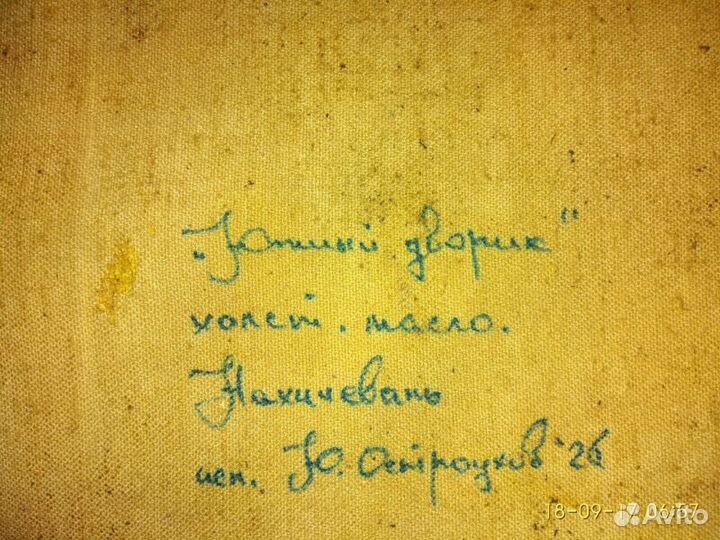 „Южный дворик"
холст. масло.
Нахичевань
исп. Ю. Остроухов '26
18-09-17 06:57
Avito